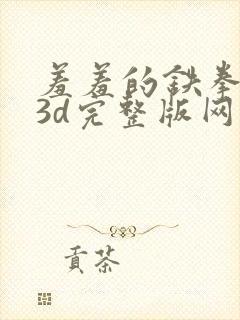 羞羞的铁拳
3d完整版网
贡茶